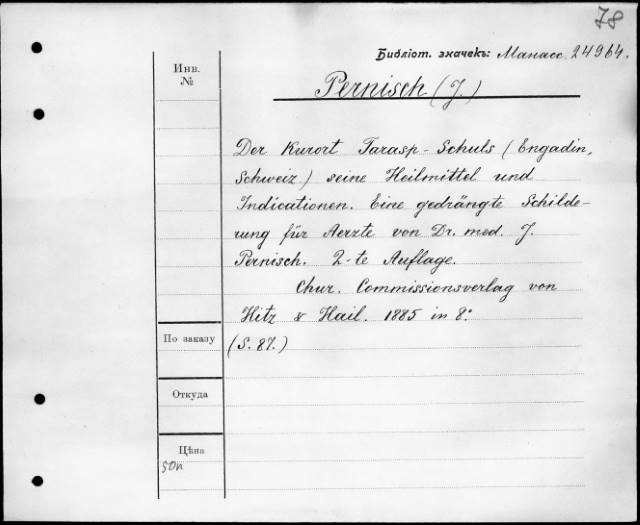 78
Библіот. значекъ: Манасс. 24964.
Инв.
№
Pernisch (J.)
Der Kurort Tarasp-Schuls (Engadin,
Schweiz.) seine Heilmittel und
Indicationen. Eine gedrängte Schilde-
rung für Aerzte von Dr. med. J.
Pernisch. 2-te Auflage.
Chur. Commissionsverlag von
Hitz & Hail. 1885 in 8º
(S. 87.)
По заказу
Откуда
Цѣна
50п